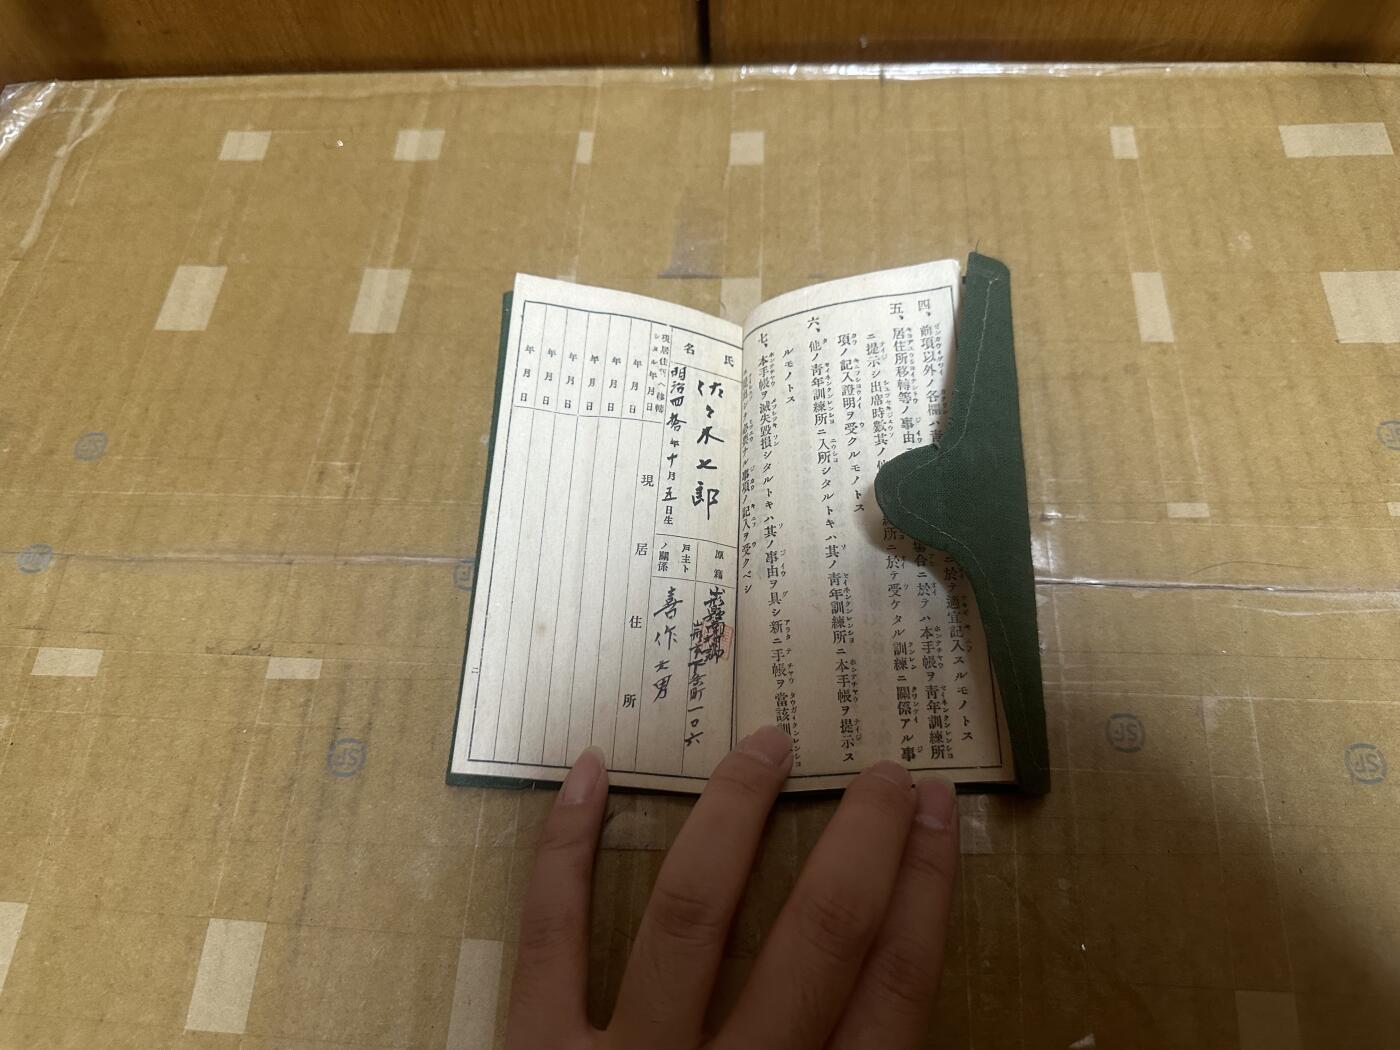 四、前項以外ノ各欄ハ青
ニ於テ適宜記入スルモノトス
五、居住所移轉等ノ事由
場合ニ於テハ本手帳ヲ青年訓練所
ニ提示シ出席時數其ノ他
所ニ於テ受ケタル訓練ニ關係アル事
項ノ記入證明ヲ受クルモノトス
六、他ノ青年訓練所ニ入所シタルトキハ其ノ青年訓練所ニ本手帳ヲ提示ス
ルモノトス
七、本手帳ヲ滅失毀損シタルトキハ其ノ事由ヲ具シ新ニ手帳ヲ當該訓
事項ノ記入ヲ受クベシ
氏名
佐々木七郎
原籍
下条町一〇六
明治四拾年十月五日生
戸主トノ關係
喜作七男
現居住所へ移轉シタル年月日
現居住所
年月日
年月日
年月日
年月日
年月日
年月日
二